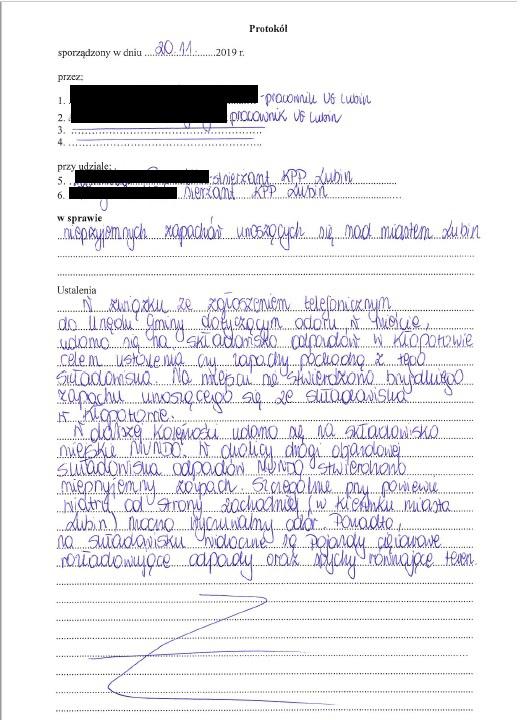 Protokół
sporządzony w dniu 20.11. 2019 r.
przez:
1. -pracownik UG Lubin
2. pracownik UG Lubin
3.
4.
przy udziale:
5. -st.sierżant KPP Lubin
6. sierżant KPP Lubin
w sprawie
nieprzyjemnych zapachów unoszących się nad miastem Lubin
Ustalenia
W związku ze zgłoszeniem telefonicznym
do Urzędu Gminy dotyczącym odoru w mieście,
udano się na składowisko odpadów w Kłopotowie
celem ustalenia czy zapachy pochodzą z tego
składowiska. Na miejscu nie stwierdzono brzydkiego
zapachu unoszącego się ze składowiska
w Kłopotowie.
W dalszej kolejności udano się na składowisko
miejskie MUNDO. W okolicy drogi objazdowej
składowiska odpadów MUNDO stwierdzono
nieprzyjemny zapach. Szczególnie przy powiewie
wiatru od strony zachodniej (w kierunku miasta
Lubin) mocno wyczuwalny odór. Ponadto,
na składowisku widoczne są pojazdy ciężarowe
rozładowujące odpady oraz spychy równające teren